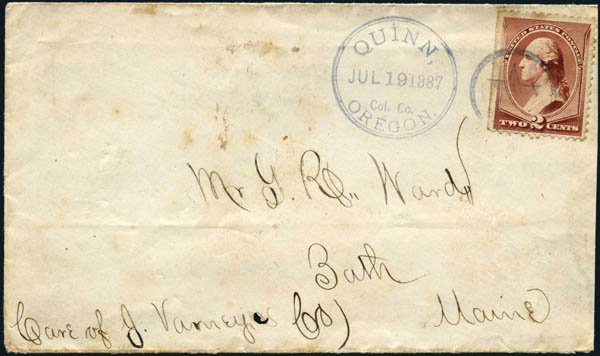 QUINN,
JUL 19 1887
Col. Co.
OREGON.
UNITED STATES POSTAGE
TWO 2 CENTS
Mr G. R. Ward
Bath
Maine
Care of J. Varneys Co)